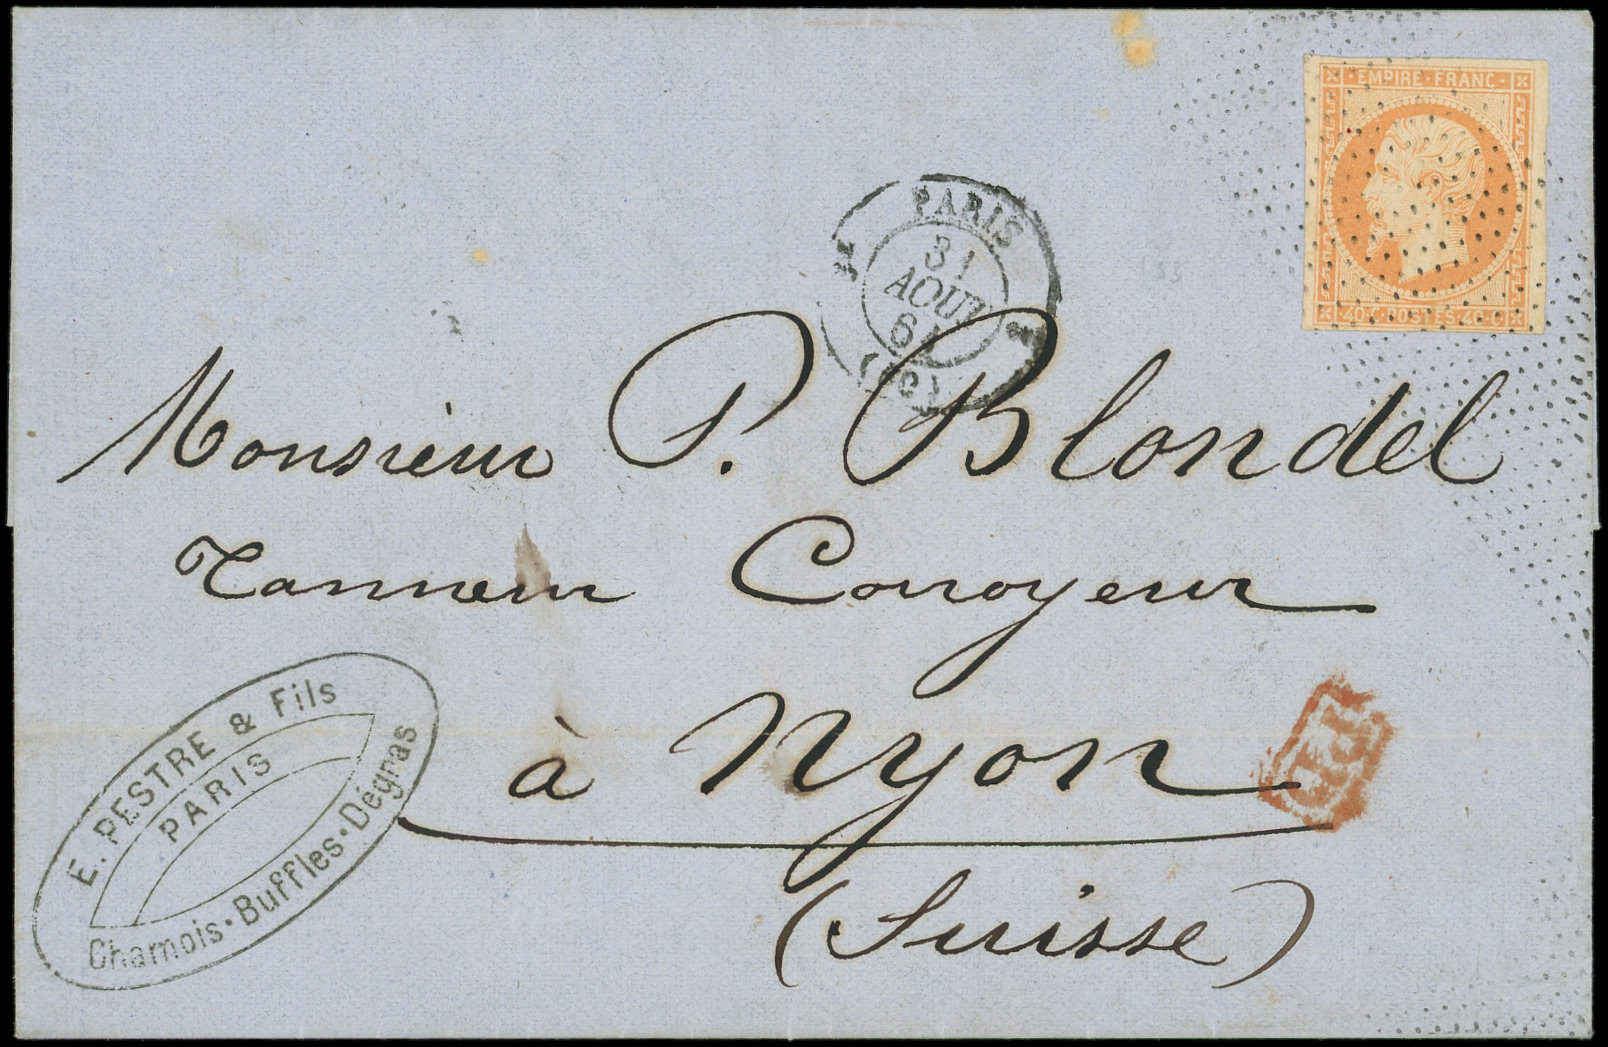 EMPIRE·FRANC·
40·C·POSTES·40·C·
PARIS
31
AOUT
61
(C)
Monsieur P. Blondel
Tanneur Corroyeur
à Nyon
(Suisse)
P.P.
E. PESTRE & Fils
PARIS
Chamois·Buffles·Dégras